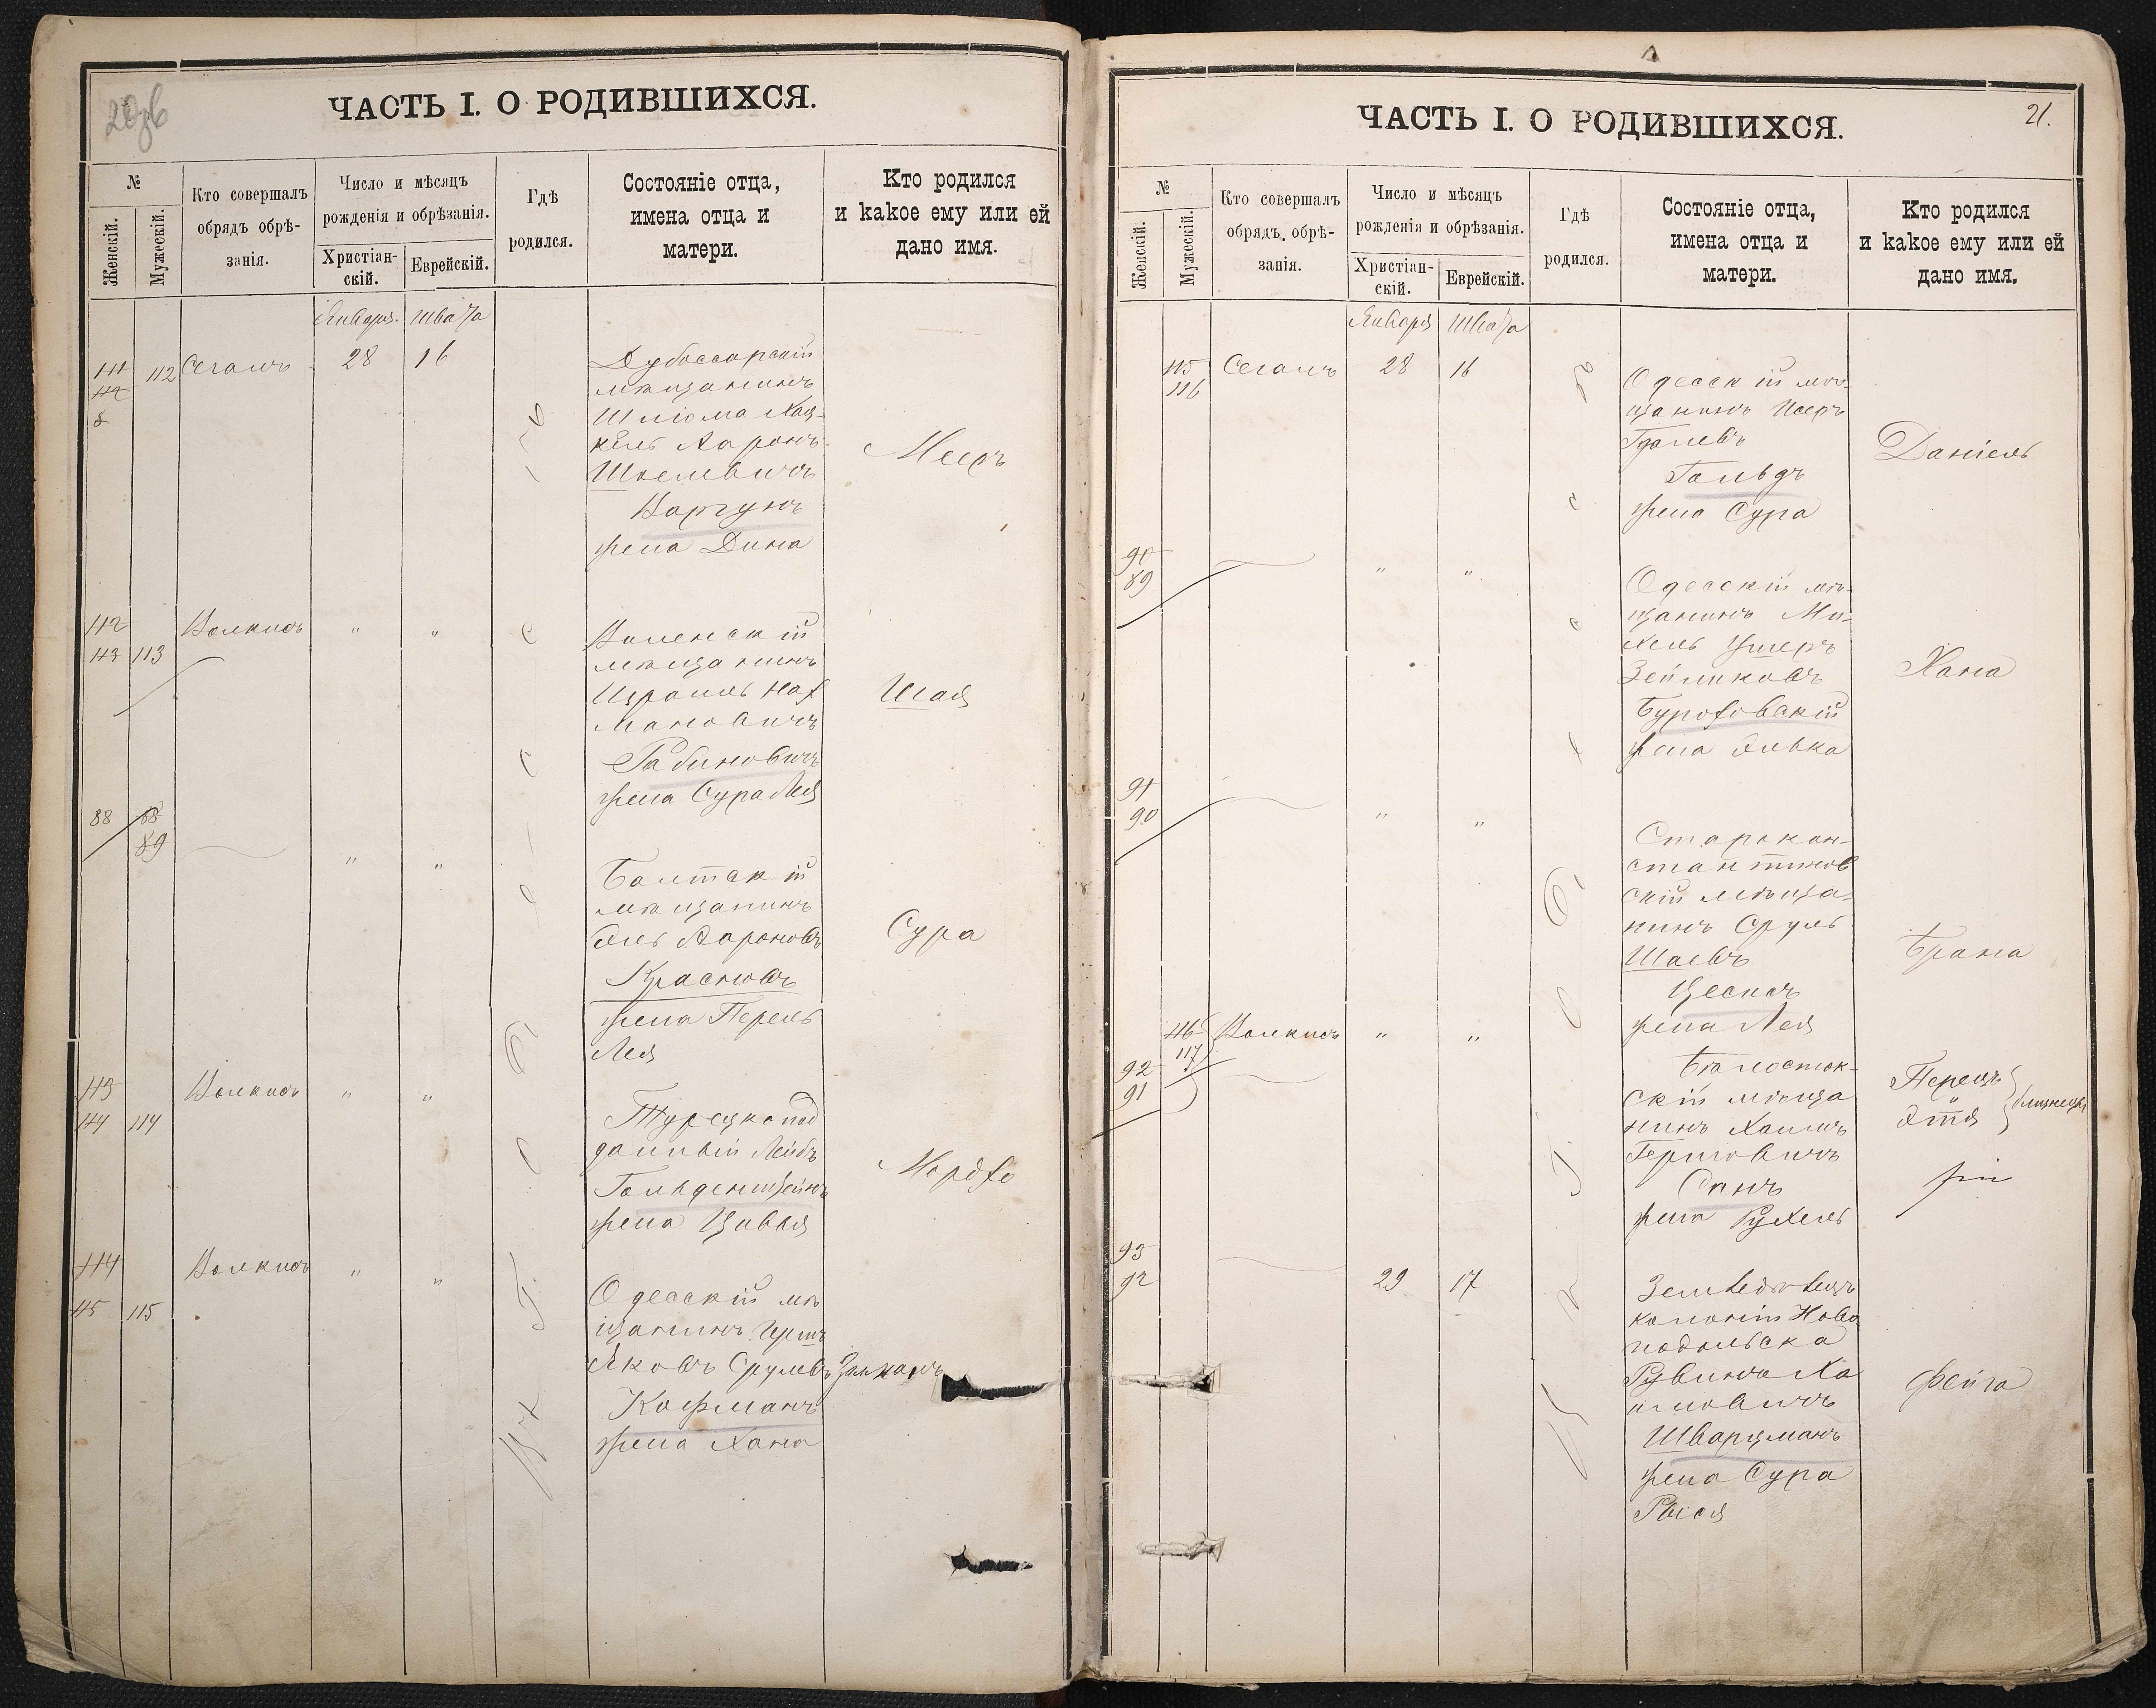 ЧАСТЬ I. О РОДИВШИХСЯ.
№
Женскій.
Мужескій.
Кто совершалъ
обрядъ обрѣ-
занія.
Число и мѣсяцъ
рожденія и обрѣзанія.
Христіан-
скій.
Еврейскій.
Гдѣ
родился.
Состояніе отца,
имена отца и
матери.
Кто родился
и какое ему или ей
дано имя.
Января Швата
112 Сегалъ 28 16
Дубоссарскій
мѣщанинъ
Шлiома Хац-
кель Ааронъ
Шоелевичъ
жена Дина
Мееръ
112
113 113
Волкисъ " "
Виленскій
мѣщанинъ
Израиль Нах
мановичъ
Рабиновичъ
жена Сура Лея
Исая
88 88
89
" "
Балтскій
мѣщанинъ
Эль Аароновъ
Красновъ
жена Перель
Лея
Сура
113
114 114
Волкисъ " "
Турецкопод
данный Лейбъ
Гольденштейнъ
жена Цивья
Мордхо
114
115 115
Волкисъ " "
Одесскій мѣ
щанинъ Герш
Яковъ Срулевъ
Кофманъ
жена Хана
Залманъ
ЧАСТЬ I. О РОДИВШИХСЯ.
21.
№
Женскій.
Мужескій.
Кто совершалъ
обрядъ обрѣ-
занія.
Число и мѣсяцъ
рожденія и обрѣзанія.
Христіан-
скій.
Еврейскій.
Гдѣ
родился.
Состояніе отца,
имена отца и
матери.
Кто родился
и какое ему или ей
дано имя.
Января Швата
115
116
Сегалъ 28 16
Одесскій мѣ-
щанинъ Иееръ
Гдалевъ
Гольдъ
жена Сура
Даніель
90
89
" "
Одесскій мѣ-
щанинъ Ми-
хель Ушеръ
Зейликовъ
Бураховскій
жена Элька
Хана
91
90
" "
Старокон-
стантинов
скій мѣща-
нинъ Сруль
Шаевъ
Цесисъ
жена Лея
Брана
116
117
92
91
Волкисъ " "
Бѣлосток-
скій мѣща
нинъ Хаимъ
Гершовичъ
жена Рухель
Перецъ
и
Этя
близнецы
93
92
29 17
Земледѣлецъ
колоніи Ново
подольска
Рувинъ Ха
имовичъ
Шварцманъ
жена Сура
Рыся
Фейга